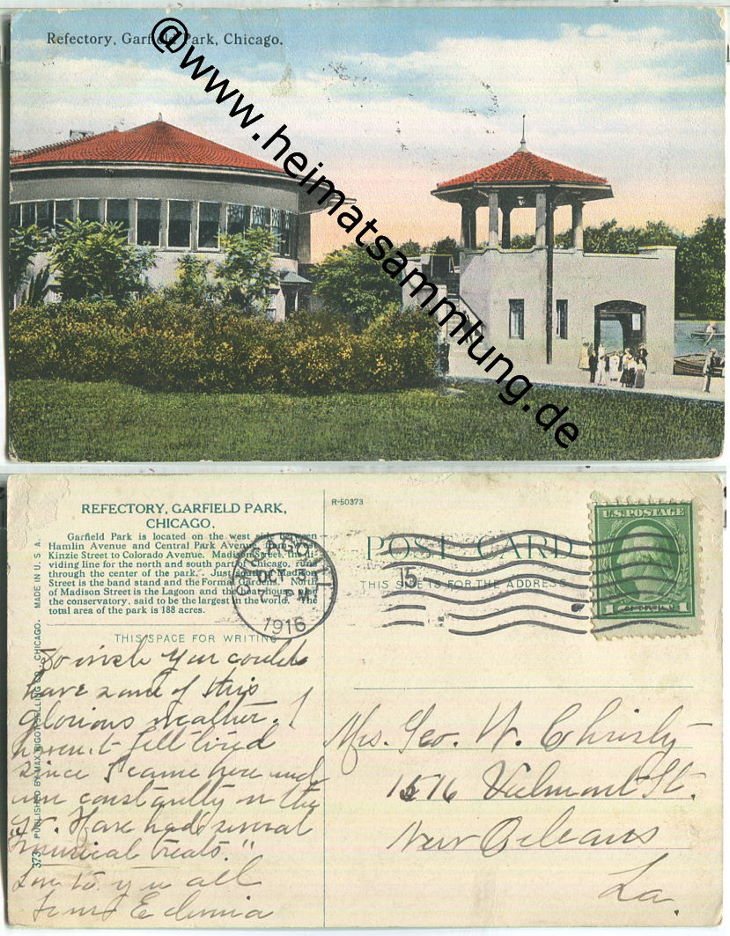 Refectory, Garfield Park, Chicago.
@www.heimatsammlung.de
REFECTORY, GARFIELD PARK,
CHICAGO.
Garfield Park is located on the west side between
Hamlin Avenue and Central Park Avenue, from
Kinzie Street to Colorado Avenue. Madison Street, the di-
viding line for the north and south parts of Chicago, runs
through the center of the park. Just south of Madison
Street is the band stand and the Formal Gardens. North
of Madison Street is the Lagoon and the boathouse, also
the conservatory, said to be the largest in the world. The
total area of the park is 188 acres.
THIS SPACE FOR WRITING
373 PUBLISHED BY MAX RIGOT SELLING CO., CHICAGO. MADE IN U. S. A.
R-50373
POST CARD
THIS SIDE IS FOR THE ADDRESS
CHICAGO, ILL.
OCT
7 PM
1916
15
U.S. POSTAGE
1 1
Do wish you could
have some of this
glorious weather. I
haven't felt tired
since I came here and
am constantly on the
go. Have had several
"musical treats."
Love to you all
Edwina
Mrs. Geo. W. Christy
1576 Valmont St.
New Orleans
La.